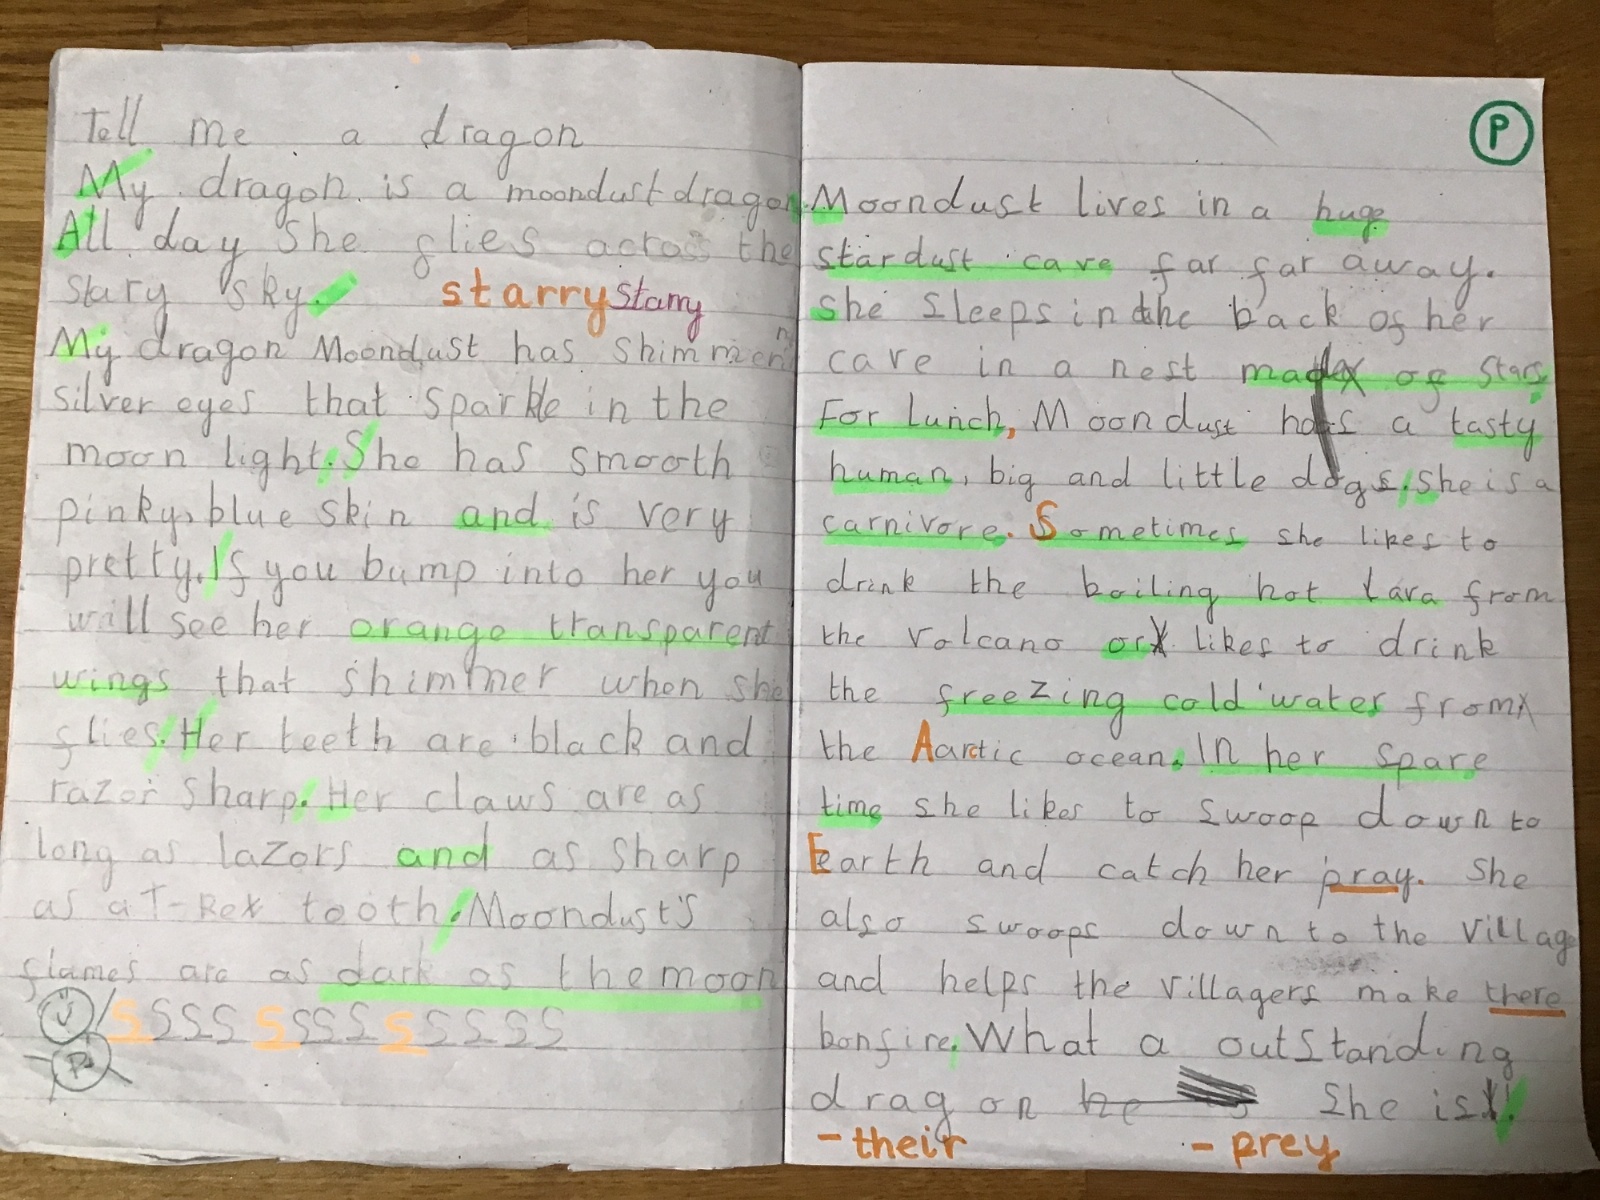 Tell me a dragon
My dragon is a moondust dragon.
All day she flies across the
stary sky. starry starry
My dragon Moondust has shimmen
silver eyes that sparkle in the
moon light. She has smooth
pinky, blue skin and is very
pretty. If you bump into her you
will see her orange transparent
wings that shimmer when she
flies. Her teeth are black and
razor sharp. Her claws are as
long as lazors and as sharp
as a T-Rex tooth. Moondust's
flames are as dark as the moon
S S S S S S S S S S S S
P
Moondust lives in a huge
stardust cave far far away.
She sleeps in the back of her
cave in a nest made of stars.
For lunch, Moondust has a tasty
human, big and little dogs. She is a
carnivore. Sometimes she likes to
drink the boiling hot lava from
the volcano or likes to drink
the freezing cold water from
the Aartic ocean. In her spare
time she likes to swoop down to
Earth and catch her pray. She
also swoops down to the villag
and helps the villagers make there
bonfire. What a outstanding
dragon he She is!
- their - prey